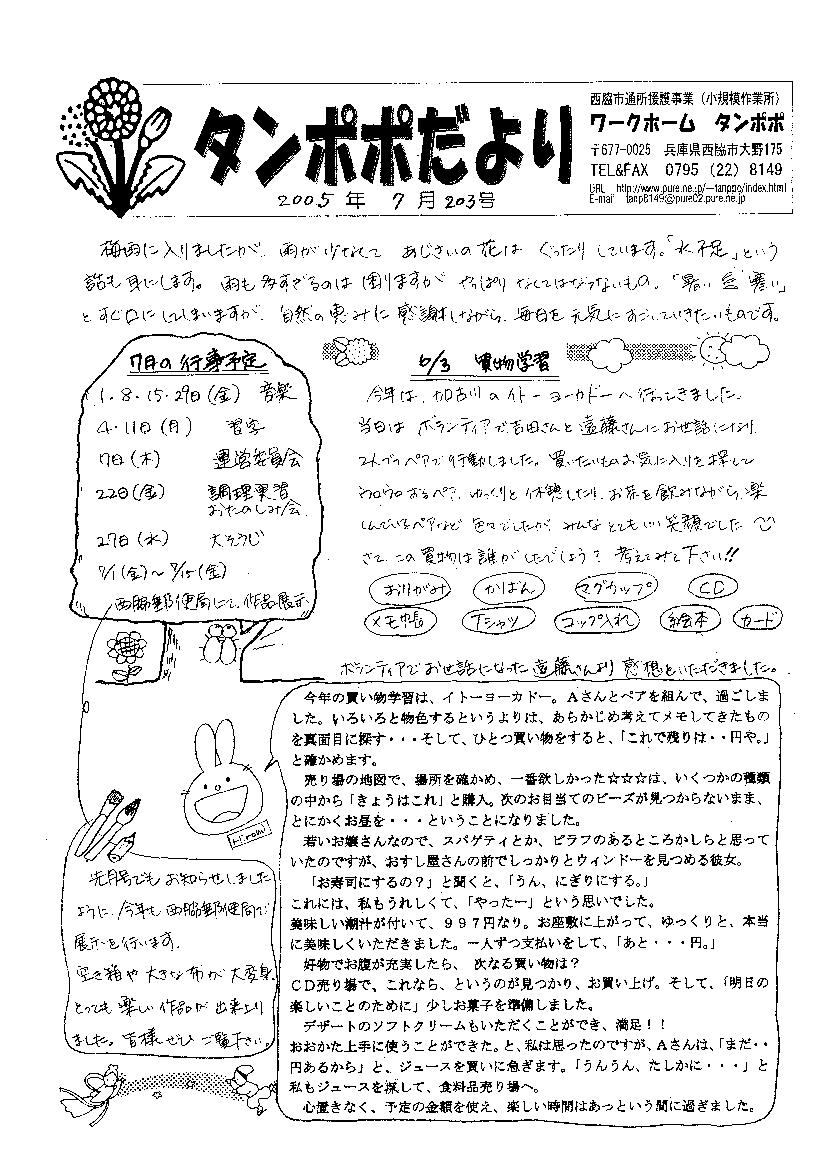 西脇市通所援護事業（小規模作業所）
ワークホーム　タンポポ
〒677-0025　兵庫県西脇市大野175
TEL&FAX　0795（22）8149
URL　http://www.pure.ne.jp/~tanpp/index.html
E-mail　tanp8149@pure02.pure.ne.jp
タンポポだより
2005年　7月203号
梅雨に入りましたが、雨が少なくて　あじさいの花は　ぐったりしています。「水不足」という
話も耳にします。雨も多すぎるのは困りますが　やっぱりなくてはならないもの。「暑い」「寒い」
とすぐ口にしてしまいますが、自然の恵みに感謝しながら、毎日を元気にすごしていきたいものです。
7月の行事予定
1・8・15・29日（金）　音楽
4・11日（月）　習字
7日（木）　運営委員会
22日（金）　調理実習
おたのしみ会
27日（水）　大そうじ
7/1（金）～7/15（金）
西脇郵便局にて作品展示
6/3　買物学習
今年は、加古川のイトーヨーカドーへ行ってきました。
当日は　ボランティアで吉田さんと遠藤さんにお世話になり
2人づつペアで行動しました。買いたいものお気に入りを探して
ウロウロするペア、ゆっくりと休憩したり、お茶を飲みながら、楽
しんでいるペアなど　色々でしたが、みんなとてもいい笑顔でした
さて、この買物は誰がしたでしょう？　考えてみて下さい!!
おりがみ　かばん　マグカップ　CD
メモ帳　Tシャツ　コップ入れ　絵本　カード
ボランティアでお世話になった遠藤さんより　感想をいただきました。
今年の買い物学習は、イトーヨーカドー。Aさんとペアを組んで、過ごしま
した。いろいろと物色するというよりは、あらかじめ考えてメモしてきたもの
を真面目に探す・・・そして、ひとつ買い物をすると、「これで残りは・・円や。」
と確かめます。
売り場の地図で、場所を確かめ、一番欲しかった☆☆☆は、いくつかの種類
の中から「きょうはこれ」と購入。次のお目当てのビーズが見つからないまま、
とにかくお昼を・・・ということになりました。
若いお嬢さんなので、スパゲティとか、ピラフのあるところかしらと思って
いたのですが、おすし屋さんの前でしっかりとウィンドーを見つめる彼女。
「お寿司にするの？」と聞くと、「うん、にぎりにする。」
これには、私もうれしくて、「やったー」という思いでした。
美味しい潮汁が付いて、997円なり。お座敷に上がって、ゆっくりと、本当
に美味しくいただきました。一人ずつ支払いをして、「あと・・・円。」
好物でお腹が充実したら、次なる買い物は？
CD売り場で、これなら、というのが見つかり、お買い上げ。そして、「明日の
楽しいことのために」少しお菓子を準備しました。
デザートのソフトクリームもいただくことができ、満足！！
おおかた上手に使うことができた。と、私は思ったのですが、Aさんは、「まだ・・
円あるから」と、ジュースを買いに急ぎます。「うんうん、たしかに・・・」と
私もジュースを探して、食料品売り場へ。
心置きなく、予定の金額を使え、楽しい時間はあっという間に過ぎました。
先月号でもお知らせしました
ように、今年も西脇郵便局で
展示を行います。
空き箱や大きな布が大変身。
とっても楽しい作品が出来上り
ました。皆様ぜひご覧下さい。